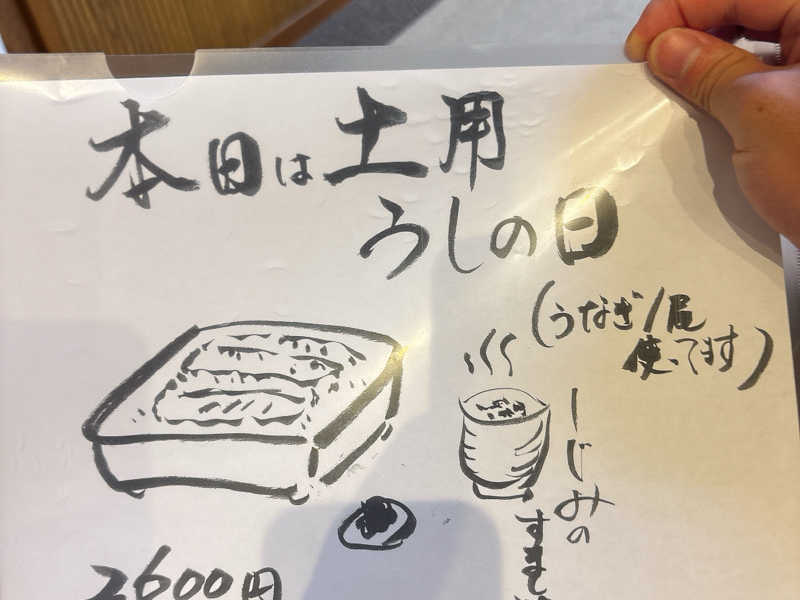 本日は土用
うしの日
(うなぎ1尾
使ってます)
しじみの
すまし
2600円